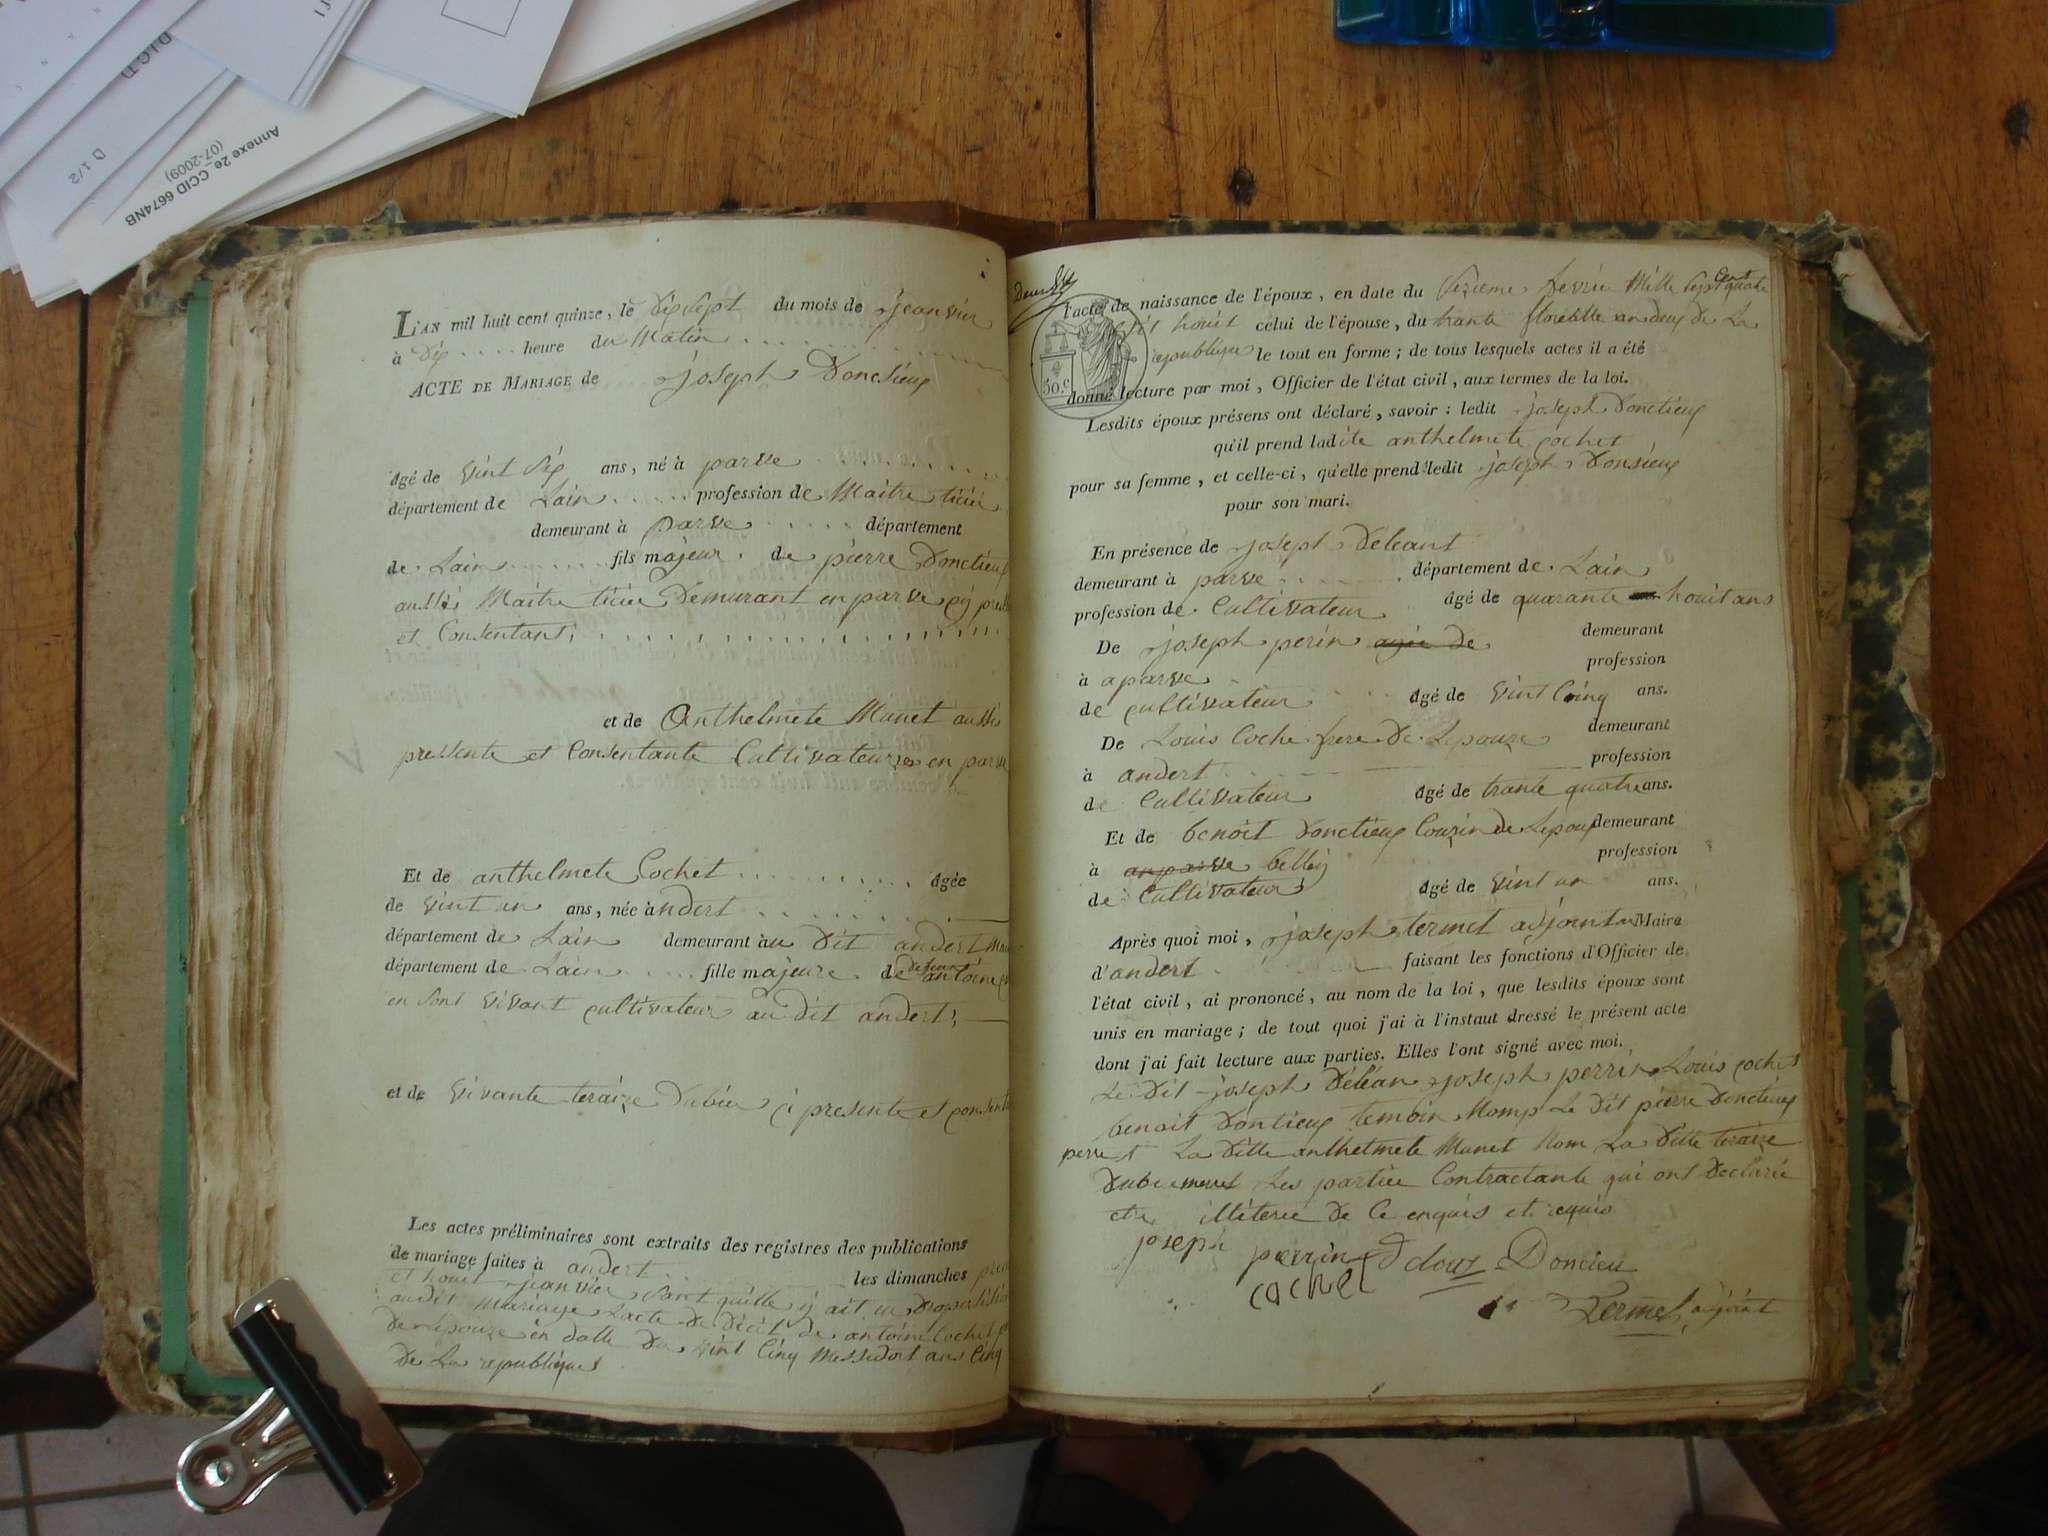 D 1/2
Annexe 2e_CCID 6674NB
(07-2009)
L'AN mil huit cent quinze, le Dixsept du mois de jeanvier
à Dix .... heure du Matin
ACTE DE MARIAGE de joseph Donctieux
âgé de vint six ans, né à parve
département de Lain profession de Maitre ticié
demeurant à parve département
de Lain fils majeur de pierre Donctieux
aussi Maitre ticié Demurant en parve cy
et Consentant;
et de Anthelmete Munet aussi
pressente et Consentante Cultivateurs en parve
Et de anthelmete Cochet âgée
de vint un ans, née àndert
département de Lain demeurant àu Dit andert
département de Lain fille majeure de defeunt antoine
en sont vivant cultivateur au dit andert;
et de vivante teraize Dubieu ci presente et
Les actes préliminaires sont extraits des registres des publications
de mariage faites à andert les dimanches
et houit jeanvier sant quille y ait eu
audit Mariage Lacte de Décét de antoine Cochet
De Lepouze en datte Du vint Cinq Messidort ans Cinq
De La republique
l'acte de naissance de l'époux, en date du sezieme fevrier Mille sept cent quatre
vit houit celui de l'épouse, du trante floreille an deux de La
republique le tout en forme; de tous lesquels actes il a été
50.c
donné lecture par moi, Officier de l'état civil, aux termes de la loi.
Lesdits époux présens ont déclaré, savoir : ledit joseph Donctieux
qu'il prend ladite anthelmete cochet
pour sa femme, et celle-ci, qu'elle prend ledit joseph Donsieux
pour son mari.
En présence de joseph Déléant
demeurant à parve département de Lain
profession de Cultivateur âgé de quarante houit ans
De joseph perin agée de demeurant
à aparve profession
de cultivateur âgé de vint Cinq ans.
De Louis Coche frere De Lepouze demeurant
à andert profession
de Cultivateur âgé de trante quatre ans.
Et de benoit Donctieux Couzin de Lepoux demeurant
à anparve belley profession
de Cultivateur âgé de vint un ans.
Après quoi moi, joseph termet adjoint Maire
d'andert faisant les fonctions d'Officier de
l'état civil, ai prononcé, au nom de la loi, que lesdits époux sont
unis en mariage; de tout quoi j'ai à l'instaut dressé le présent acte
dont j'ai fait lecture aux parties. Elles l'ont signé avec moi.
Le Dit joseph Déléan joseph perrin Louis cochet
benoit Dontieux temoin Nomp Le Dit pierre Donctieux
perre et La Ditte anthelmete Munet Nom La Ditte teraize
Dubieu meret Les partiée Contractante qui ont Declarée
etre illiterée de Ce enquis et requis
joseph perrin Deleaz Doncieu
cochet
Termet, adjoint